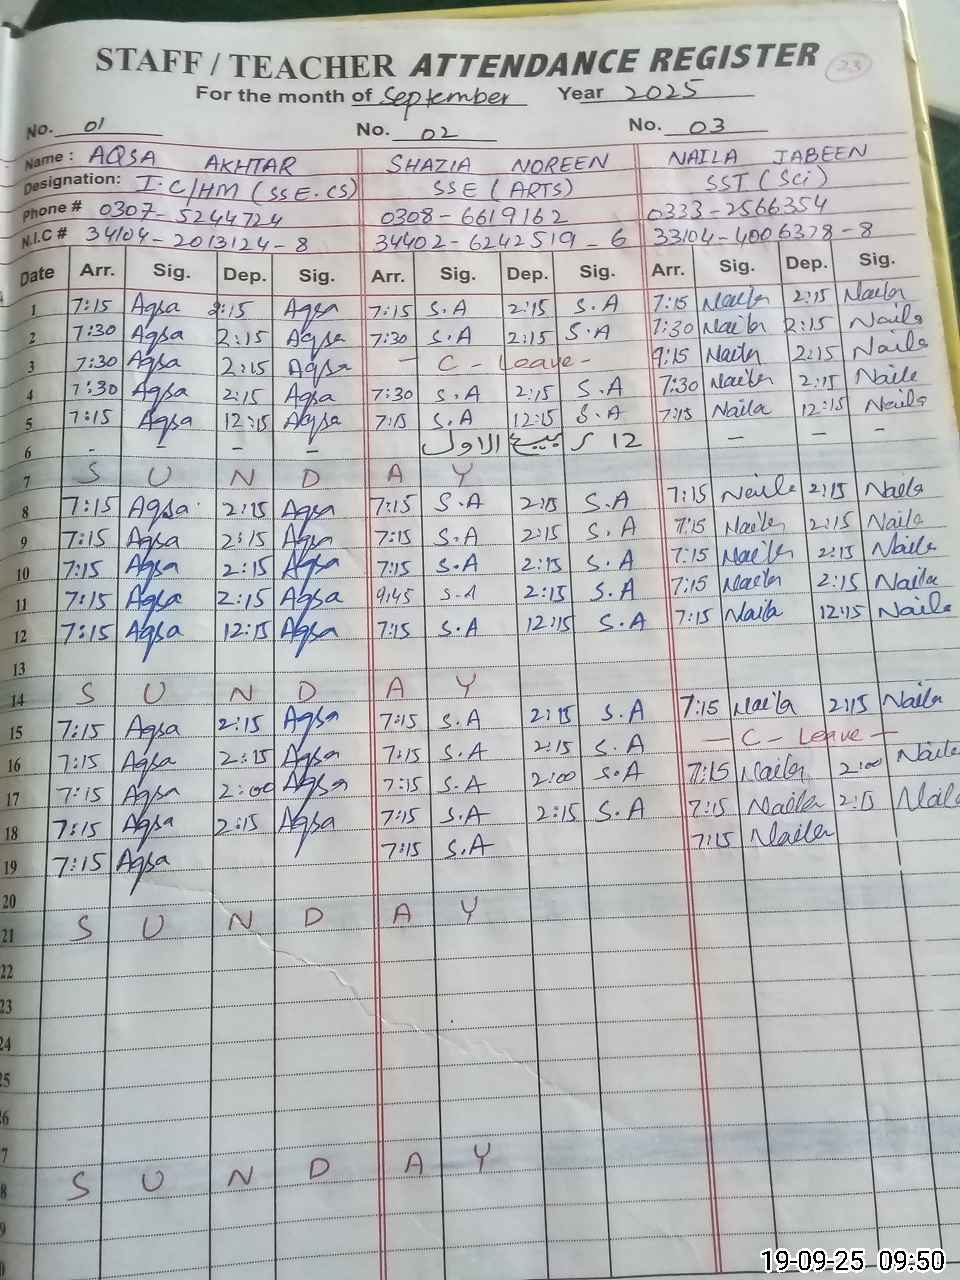 STAFF / TEACHER ATTENDANCE REGISTER 23
For the month of September Year 2025
No. 01 No. 02 No. 03
Name : AQSA AKHTAR SHAZIA NOREEN NAILA JABEEN
Designation: I.C/HM (SSE.CS) SSE (ARTS) SST (Sci)
Phone # 0307-5244724 0308-6619162 0333-2566354
N.I.C # 34104-2013124-8 34402-6242519-6 33104-4006378-8
Date Arr. Sig. Dep. Sig. Arr. Sig. Dep. Sig. Arr. Sig. Dep. Sig.
1 7:15 Aqsa 2:15 Aqsa 7:15 S.A 2:15 S.A 7:15 Naila 2:15 Naila
2 7:30 Aqsa 2:15 Aqsa 7:30 S.A 2:15 S.A 7:30 Naila 2:15 Naila
3 7:30 Aqsa 2:15 Aqsa - C - Leave - 9:15 Naila 2:15 Naila
4 7:30 Aqsa 2:15 Aqsa 7:30 S.A 2:15 S.A 7:30 Naila 2:15 Naila
5 7:15 Aqsa 12:15 Aqsa 7:15 S.A 12:15 S.A 7:15 Naila 12:15 Naila
6 - - - - 12 ربیع الاول - - -
7 S U N D A Y
8 7:15 Aqsa 2:15 Aqsa 7:15 S.A 2:15 S.A 7:15 Naila 2:15 Naila
9 7:15 Aqsa 2:15 Aqsa 7:15 S.A 2:15 S.A 7:15 Naila 2:15 Naila
10 7:15 Aqsa 2:15 Aqsa 7:15 S.A 2:15 S.A 7:15 Naila 2:15 Naila
11 7:15 Aqsa 2:15 Aqsa 9:45 S.A 2:15 S.A 7:15 Naila 2:15 Naila
12 7:15 Aqsa 12:15 Aqsa 7:15 S.A 12:15 S.A 7:15 Naila 12:15 Naila
13
14 S U N D A Y
15 7:15 Aqsa 2:15 Aqsa 7:15 S.A 2:15 S.A 7:15 Naila 2:15 Naila
16 7:15 Aqsa 2:15 Aqsa 7:15 S.A 2:15 S.A - C - Leave -
17 7:15 Aqsa 2:00 Aqsa 7:15 S.A 2:00 S.A 7:15 Naila 2:00 Naila
18 7:15 Aqsa 2:15 Aqsa 7:15 S.A 2:15 S.A 7:15 Naila 2:15 Naila
19 7:15 Aqsa 7:15 S.A 7:15 Naila
20
21 S U N D A Y
22
23
24
25
6
7
8 S U N D A Y
9
0
19-09-25 09:50